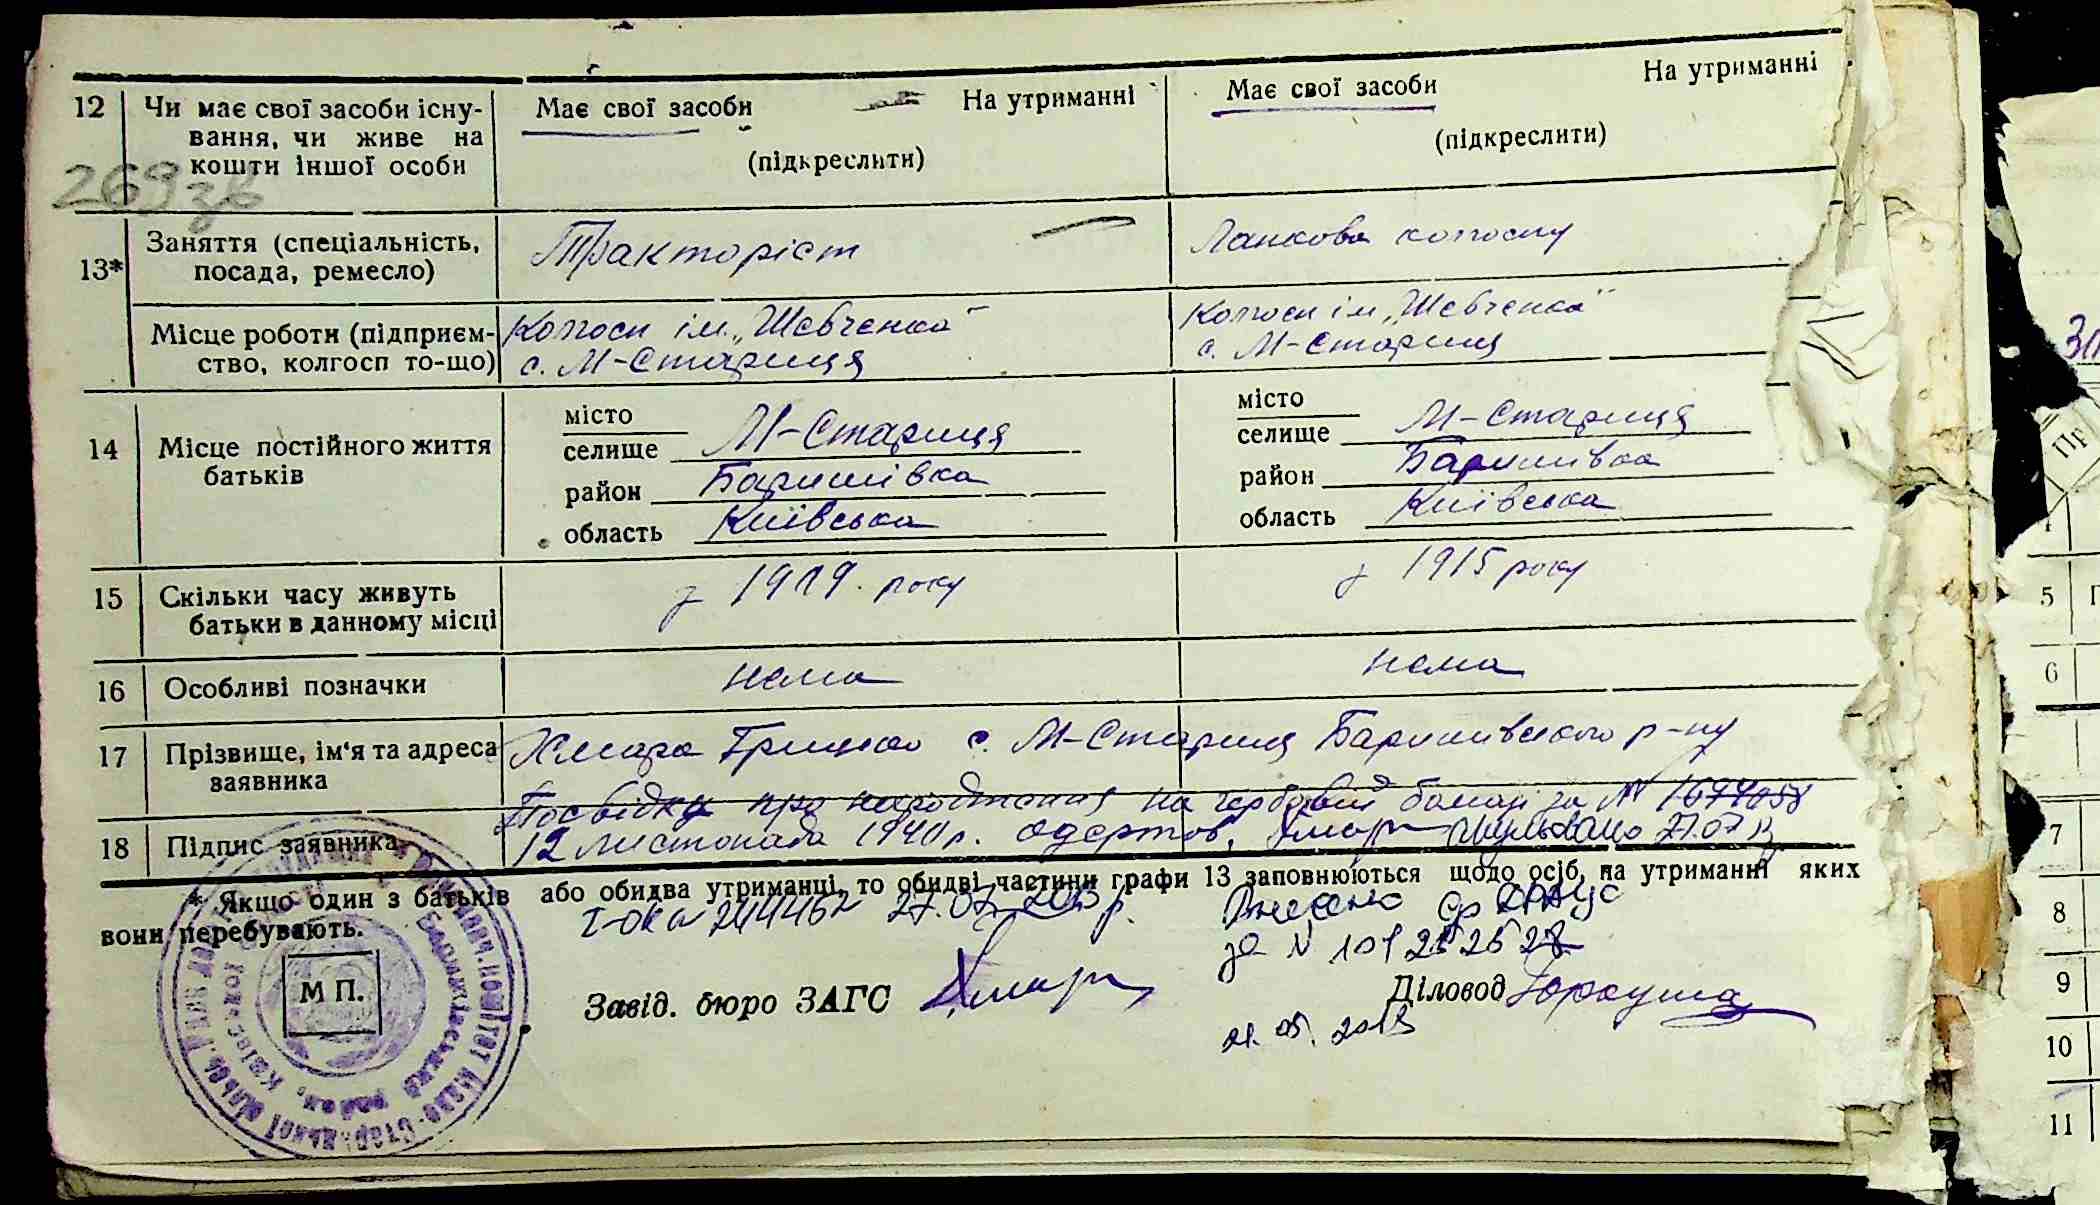 12 Чи має свої засоби існу-
вання, чи живе на
кошти іншої особи
Має свої засоби На утриманні
(підкреслити)
Має свої засоби На утриманні
(підкреслити)
269зв
13* Заняття (спеціальність,
посада, ремесло)
Тракторіст
Ланкова колгоспу
Місце роботи (підприєм-
ство, колгосп то-що)
Колгосп ім. „Шевченка"
с. М-Стариця
Колгосп ім. „Шевченка"
с. М-Стариця
14 Місце постійного життя
батьків
місто
селище М-Стариця
район Баришівка
область Київська
місто
селище М-Стариця
район Баришівка
область Київська
15 Скільки часу живуть
батьки в данному місці
з 1919 року
з 1915 року
16 Особливі позначки
нема
нема
17 Прізвище, ім'я та адреса
заявника
Хмара Грицько с. М-Стариця Баришівського р-ну
Посвідку про народження на гербовій бомазі за №
18 Підпис заявника
12 листопада 1940 р. одержав. Хмара
* Якщо один з батьків або обидва утриманці, то обидві частини графи 13 заповнюються щодо осіб, на утриманні яких
вони перебувають.
27.07.2013 р.
Внесено
за N
М П.
Завід. бюро ЗАГС
Діловод
21.05.2013
Зп
Пр
5 П
6
7
8
9
10
11